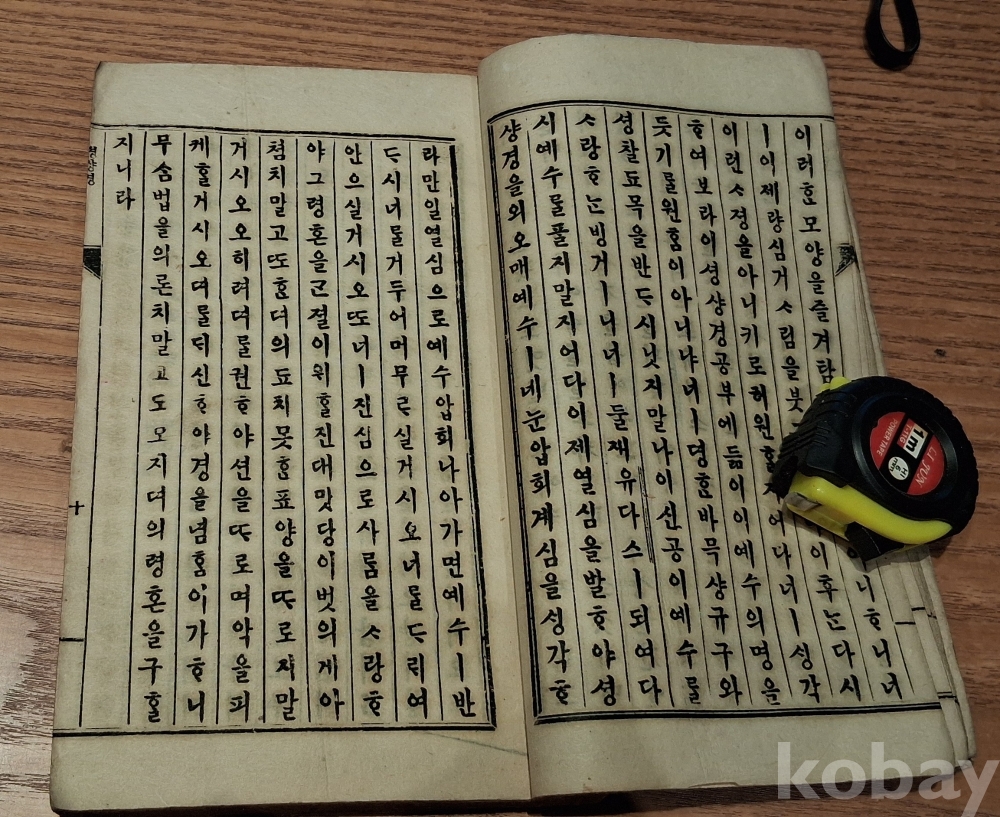 이러ᄒᆞᆫ모양을즐겨탐 니ᄒᆞ니너
ㅣ이제량심거ᄉᆞ림을붓 이후ᄂᆞᆫ다시
이런ᄉᆞ졍을아니키로허원ᄒᆞ 어다너ㅣᄉᆡᆼ각
ᄒᆞ여보라이셩샹경공부에듦이이예수의명을
듯기ᄅᆞᆯ원ᄒᆞᆷ이아니냐녀ㅣ명ᄒᆞᆫ바믁샹규구와
셩찰됴목을반ᄃᆞ시닛지말나이신공이예수ᄅᆞᆯ
ᄉᆞ랑ᄒᆞᄂᆞᆫ빙거ㅣ니너ㅣ둘재유다스ㅣ되여다
시예수ᄅᆞᆯ풀지말지어다이제열심을발ᄒᆞ야셩
샹경을외오매예수ㅣ네눈압희계심을ᄉᆡᆼ각ᄒᆞ
라만일열심으로예수압희나아가면예수ㅣ반
ᄃᆞ시너ᄅᆞᆯ거두어머무ᄅᆞ실거시오너ᄅᆞᆯᄃᆞ리여
안으실거시오ᄯᅩ너ㅣ진심으로사ᄅᆞᆷ을ᄉᆞ랑ᄒᆞ
야그령혼을군졀이위ᄒᆞᆯ진대맛당이벗의게아
쳠치말고ᄯᅩᄒᆞᆫ뎌의됴치못ᄒᆞᆫ표양을ᄯᆞ로지말
거시오오히려뎌ᄅᆞᆯ권ᄒᆞ야션을ᄯᆞ로며악을피
케ᄒᆞᆯ거시오뎌ᄅᆞᆯᄃᆡ신ᄒᆞ야경을념ᄒᆞᆷ이가ᄒᆞ니
무ᄉᆞᆷ법을의론치말고도모지뎌의령혼을구ᄒᆞᆯ
지니라
셩샹경
十
POWER TAPE
1m
kobay